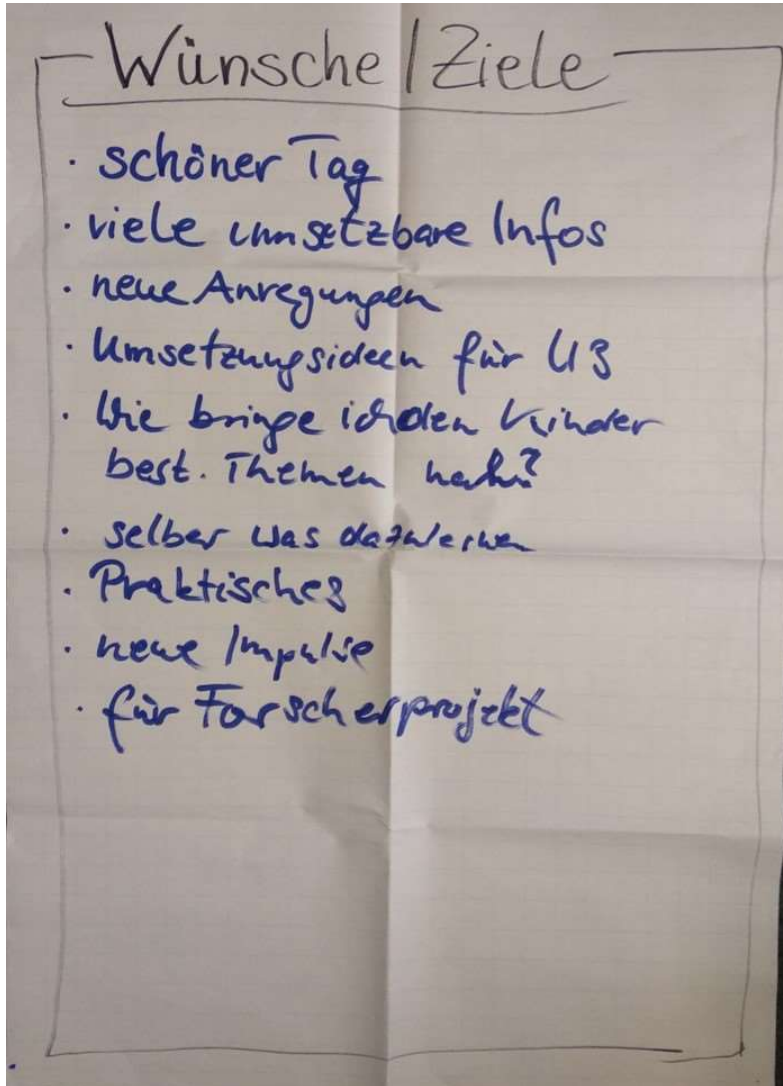 Wünsche/Ziele
· schöner Tag
· viele umsetzbare Infos
· neue Anregungen
· Umsetzungsideen für U3
· Wie bringe ich den Kinder
best. Themen nah?
· selber was dazulernen
· Praktisches
· neue Impulse
· für Forscherprojekt